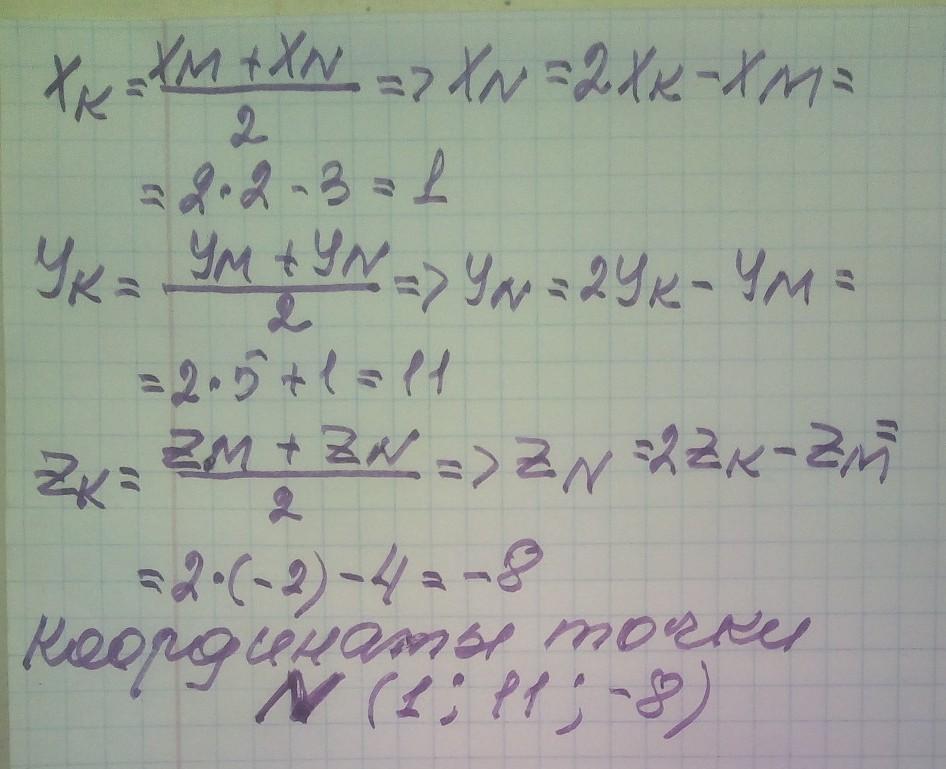 XK = XM + XN / 2 => XN = 2XK - XM =
= 2·2 - 3 = 1
YK = YM + YN / 2 => YN = 2YK - YM =
= 2·5 + 1 = 11
ZK = ZM + ZN / 2 => ZN = 2ZK - ZM =
= 2·(-2) - 4 = -8
Координаты точки
N (1; 11; -8)